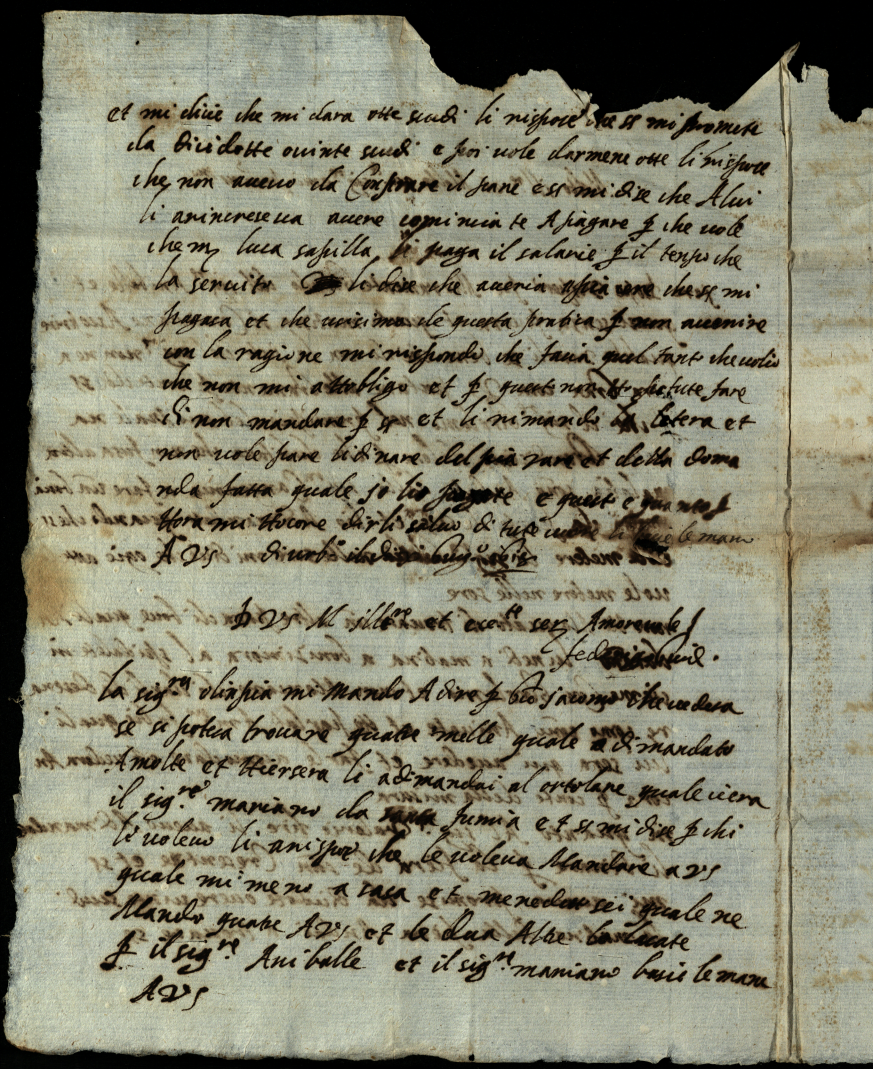 et mi dice che mi dara otte scudi li rispose che ss mi promete
da dicidotte o vinte scudi e poi vole darmene otte li rispose
che non avevo da Comprare il pane e ss mi dise che A lui
li anincreseva avere cominciate A pagare p che vole
che m luca sapilla li paga il salarie p il tempo che
la servito li dise che averia che ss mi
pagaca et che de questa pratica p non avenire
con la ragione mi rispondo che facia quel tanto che volio
che non mi attobligo et p quest non fare
di non mandare p ss et li rimando la letera et
non vole pare li dinare del et della doma
nda fatta quale jo lio pagate e quest e quanto
Hora mi Hocore dirli salvo di li le mano
A VS di urb il
D VS M ill.re et ece.te ser Amorevele
la sig.ra olinpia mi Mando A dire p gio jacomo che vedera
se si poteva trovare quatre melle quale a dimandato
Amolte et Hiersera li adimandai al ortolane quale viera
il sig.re mariano da fumia et ss mi dise p chi
li volevo li anispose che le voleva Mandare a VS
quale mi meno a casa et mene dete sei quale ne
Mando quatre A VS et le dua Altre
p il sig.re Aniballe et il sig.re mariano basie le mane
A VS